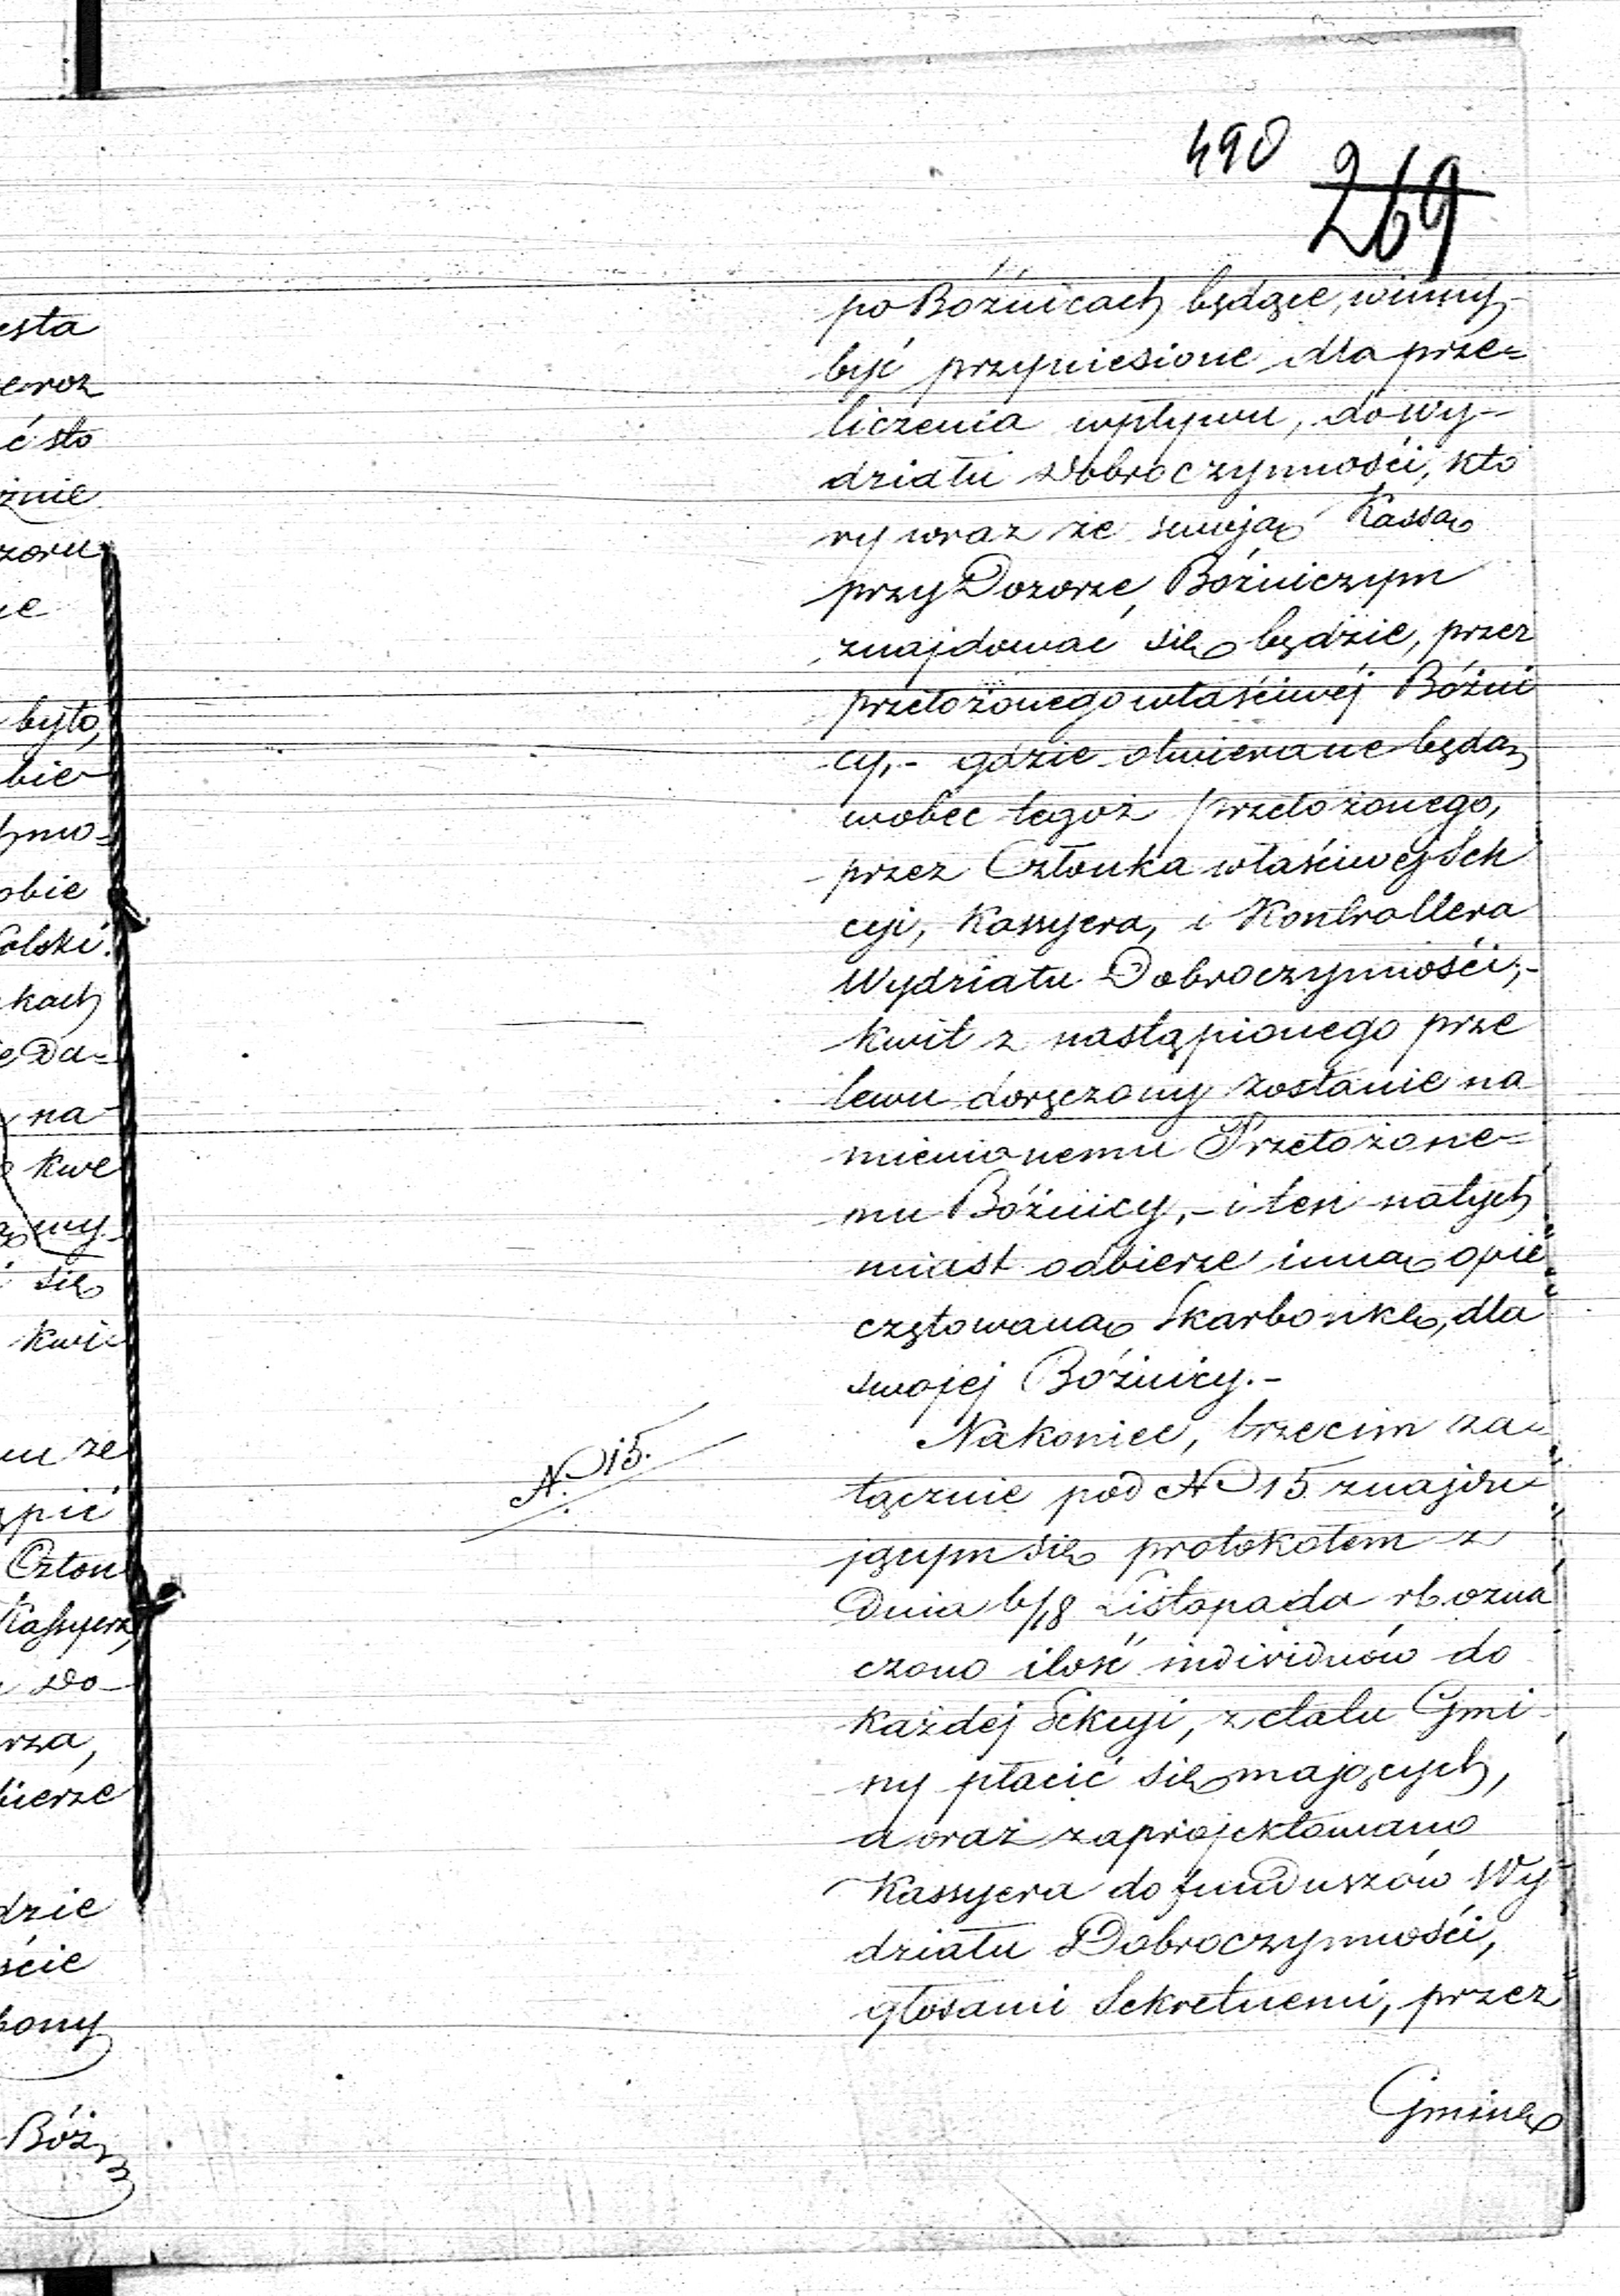 490
269
po Bóźnicach będące, winny
być przyniesione dla prze=
liczenia wpływu, do Wy-
działu Dobroczynności, któ
ry wraz ze swoją Kassą
przy Dozorze Bóźniczym
znajdować się będzie, przez
przełożonego właściwéj Bóźni
cy,- gdzie otwierane będą,
wobec tegoż przełożonego,
przez Członka właściwej Sek
cyi, Kassyera, i Kontrollera
Wydziału Dobroczynności;-
kwit z nastąpionego prze
lewu doręczony zostanie na
mienionemu Przełożone=
mu Bóźnicy,- i ten natych
miast odbierze inną opie
czętowaną Skarbonkę, dla
swojej Bóźnicy.-
Nakoniec, trzecim za=
N. 15.
łącznie pod N 15 znajdu
jącym się protokołem z
Dnia 6/18 Listopada rb. ozna
czono ilość individuów do
każdej Sekcyi, z etatu Gmi
ny płacić się mających,
a oraz zaprojektowano
Kassyera do funduszów Wy
działu Dobroczynności,
głosami Sekretnemi, przez
Gminę
esta
eroz
ć sto
źnie
zoru
ie
było,
bie
mo=
obie
Polski.
kach
e Da=
na
kwe
wy
się
kwi
u ze
ąpić
Człon
Kassyera,
Do-
rza,
bierze
dzie
ście
bony
Bóź